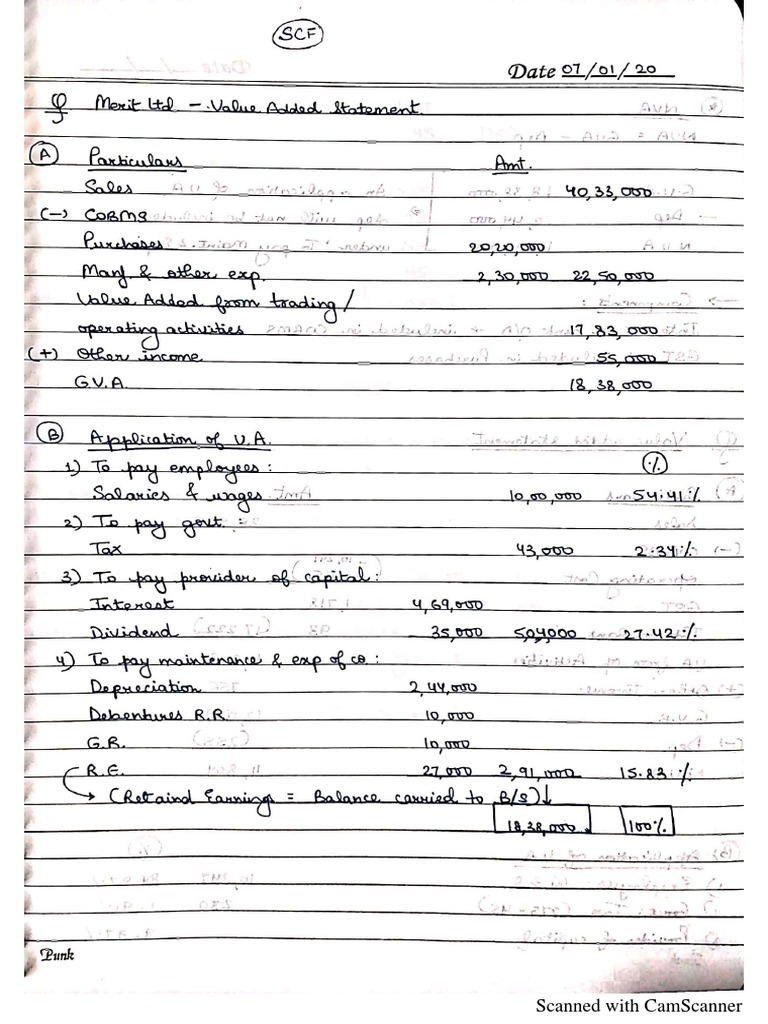 SCF
Date 07/01/20
Q Merit Ltd - Value Added Statement.
(A) Particulars Amt.
Sales 40,33,000
(-) COBMS
Purchases 20,20,000
Manf & other exp. 2,30,000 22,50,000
Value Added from trading/
operating activities 17,83,000
(+) Other income 55,000
G.V.A. 18,38,000
(B) Application of V.A.
1) To pay employees : %
Salaries & wages 10,00,000 54.41%
2) To pay govt :
Tax 43,000 2.34%
3) To pay provider of capital:
Interest 4,69,000
Dividend 35,000 504000 27.42%
4) To pay maintenance & exp of co :
Depreciation 2,44,000
Debentures R.R. 10,000
G.R. 10,000
R.E. 27,000 2,91,000 15.83%
→ (Retaind Earning = Balance carried to B/S)↓
18,38,000 100%
Punk
Scanned with CamScanner